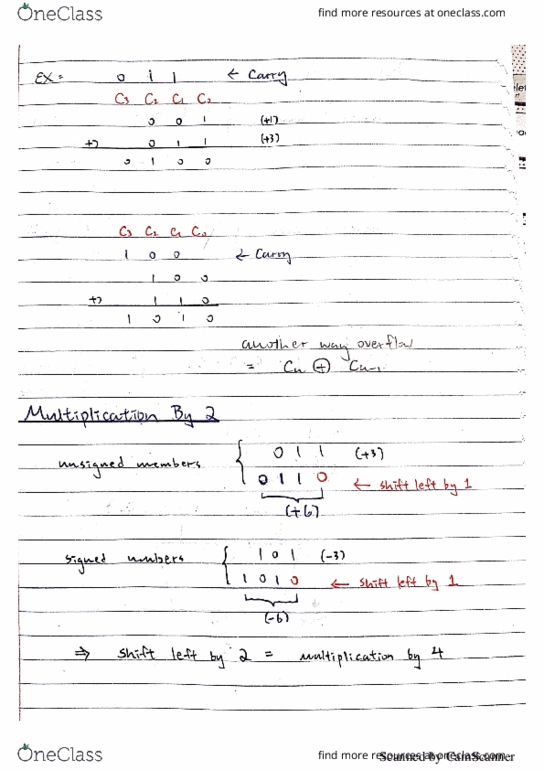 OneClass
find more resources at oneclass.com
EX = 0 1 1 ← Carry
C3 C2 C1 C0
0 0 1 (+1)
+) 0 1 1 (+3)
0 1 0 0
C3 C2 C1 C0
1 0 0 ← Carry
1 0 0
+) 1 1 0
1 0 1 0
another way overflow
= Cn ⊕ Cn-1
Multiplication By 2
unsigned members { 0 1 1 (+3)
0 1 1 0 ← shift left by 1
(+6)
signed numbers { 1 0 1 (-3)
1 0 1 0 ← shift left by 1
(-6)
⇒ shift left by 2 = multiplication by 4
OneClass
find more resources at oneclass.com
Scanned by CamScanner